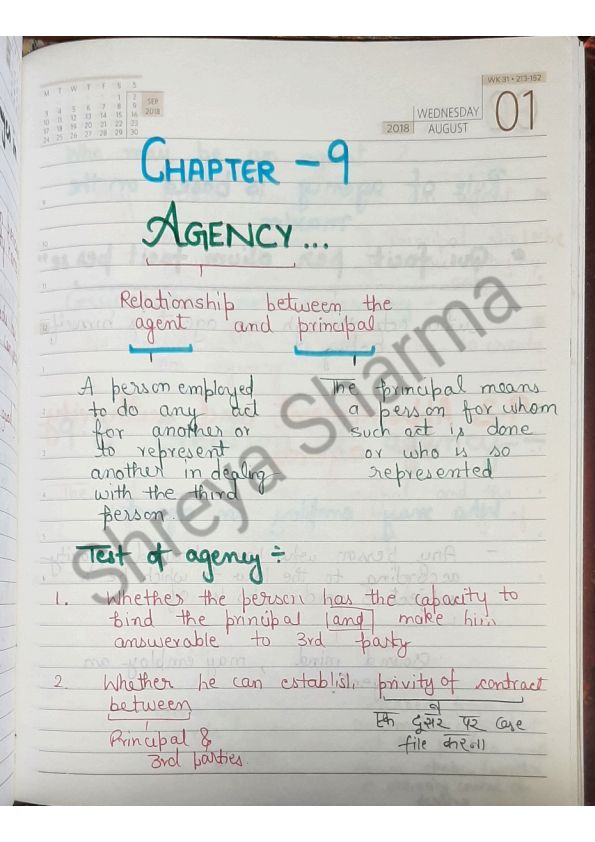 M T W T F S S
1 2
3 4 5 6 7 8 9
10 11 12 13 14 15 16
17 18 19 20 21 22 23
24 25 26 27 28 29 30
SEP
2018
WK 31 • 213-152
2018
WEDNESDAY
AUGUST
01
CHAPTER - 9
AGENCY...
Relationship between the
agent and principal
A person employed
to do any act
for another or
to represent
another in dealing
with the third
person.
The principal means
a person for whom
such act is done
or who is so
represented
Test of agency ÷
1. Whether the person has the capacity to
bind the principal and make him
answerable to 3rd party
2. Whether he can establish privity of contract
between
Principal &
3rd parties.
एक दूसरे पर case
file करना
Shreya Sharma